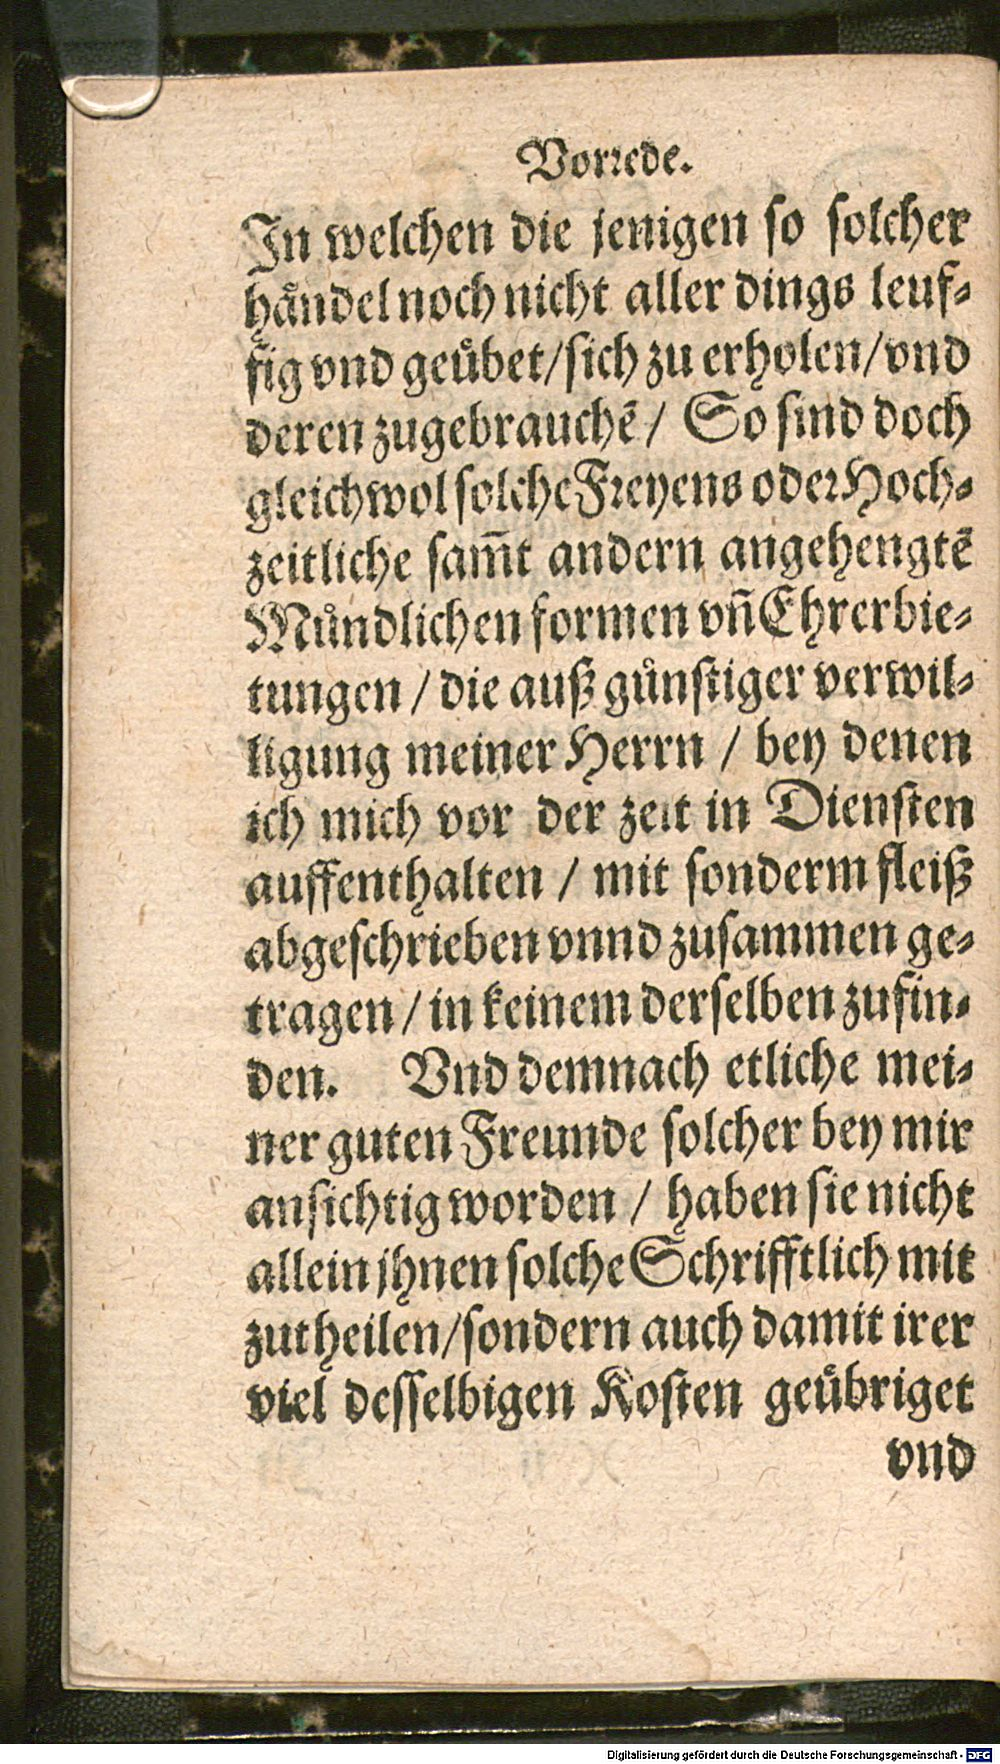 Vorrede.
In welchen die jenigen so solcher
haͤndel noch nicht aller dings leuf-
fig vnd geuͤbet/sich zu erholen/vnd
deren zugebrauchẽ / So sind doch
gleichwol solche Freyens oder Hoch-
zeitliche sam̃t andern angehengtẽ
Muͤndlichen formen vñ Ehrerbie-
tungen / die auß guͤnstiger verwil-
ligung meiner Herrn / bey denen
ich mich vor der zeit in Diensten
auffenthalten / mit sonderm fleiß
abgeschrieben vnnd zusammen ge-
tragen / in keinem derselben zufin-
den. Vnd demnach etliche mei-
ner guten Freunde solcher bey mir
ansichtig worden / haben sie nicht
allein jhnen solche Schrifftlich mit
zutheilen/sondern auch damit irer
viel desselbigen Kosten geuͤbriget
vnd
Digitalisierung gefördert durch die Deutsche Forschungsgemeinschaft - DFG